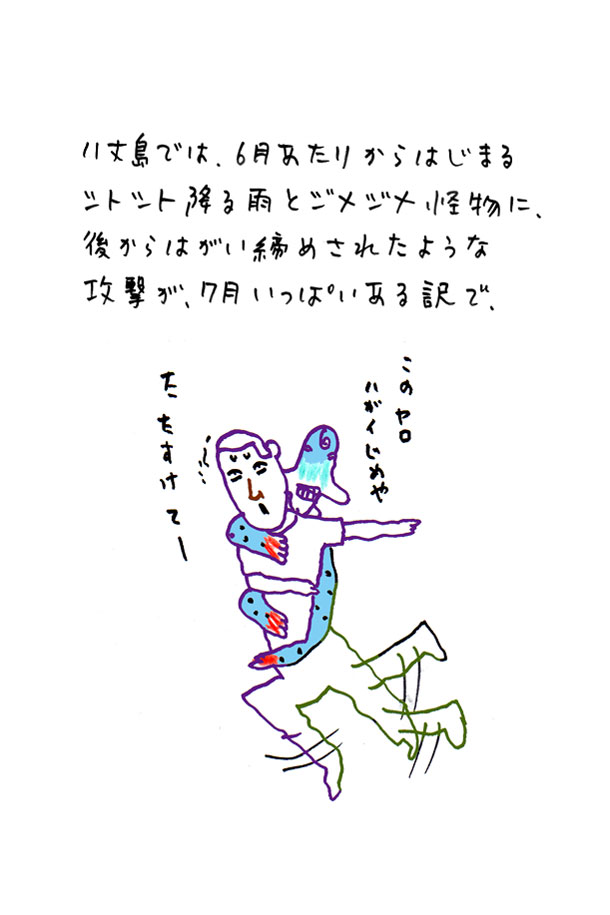 八丈島では、6月あたりからはじまる
シトシト降る雨とジメジメ怪物に、
後からはがい締めされたような
攻撃が、7月いっぱいある訳で、
このヤロ
ハガイじめや
た たすけてー